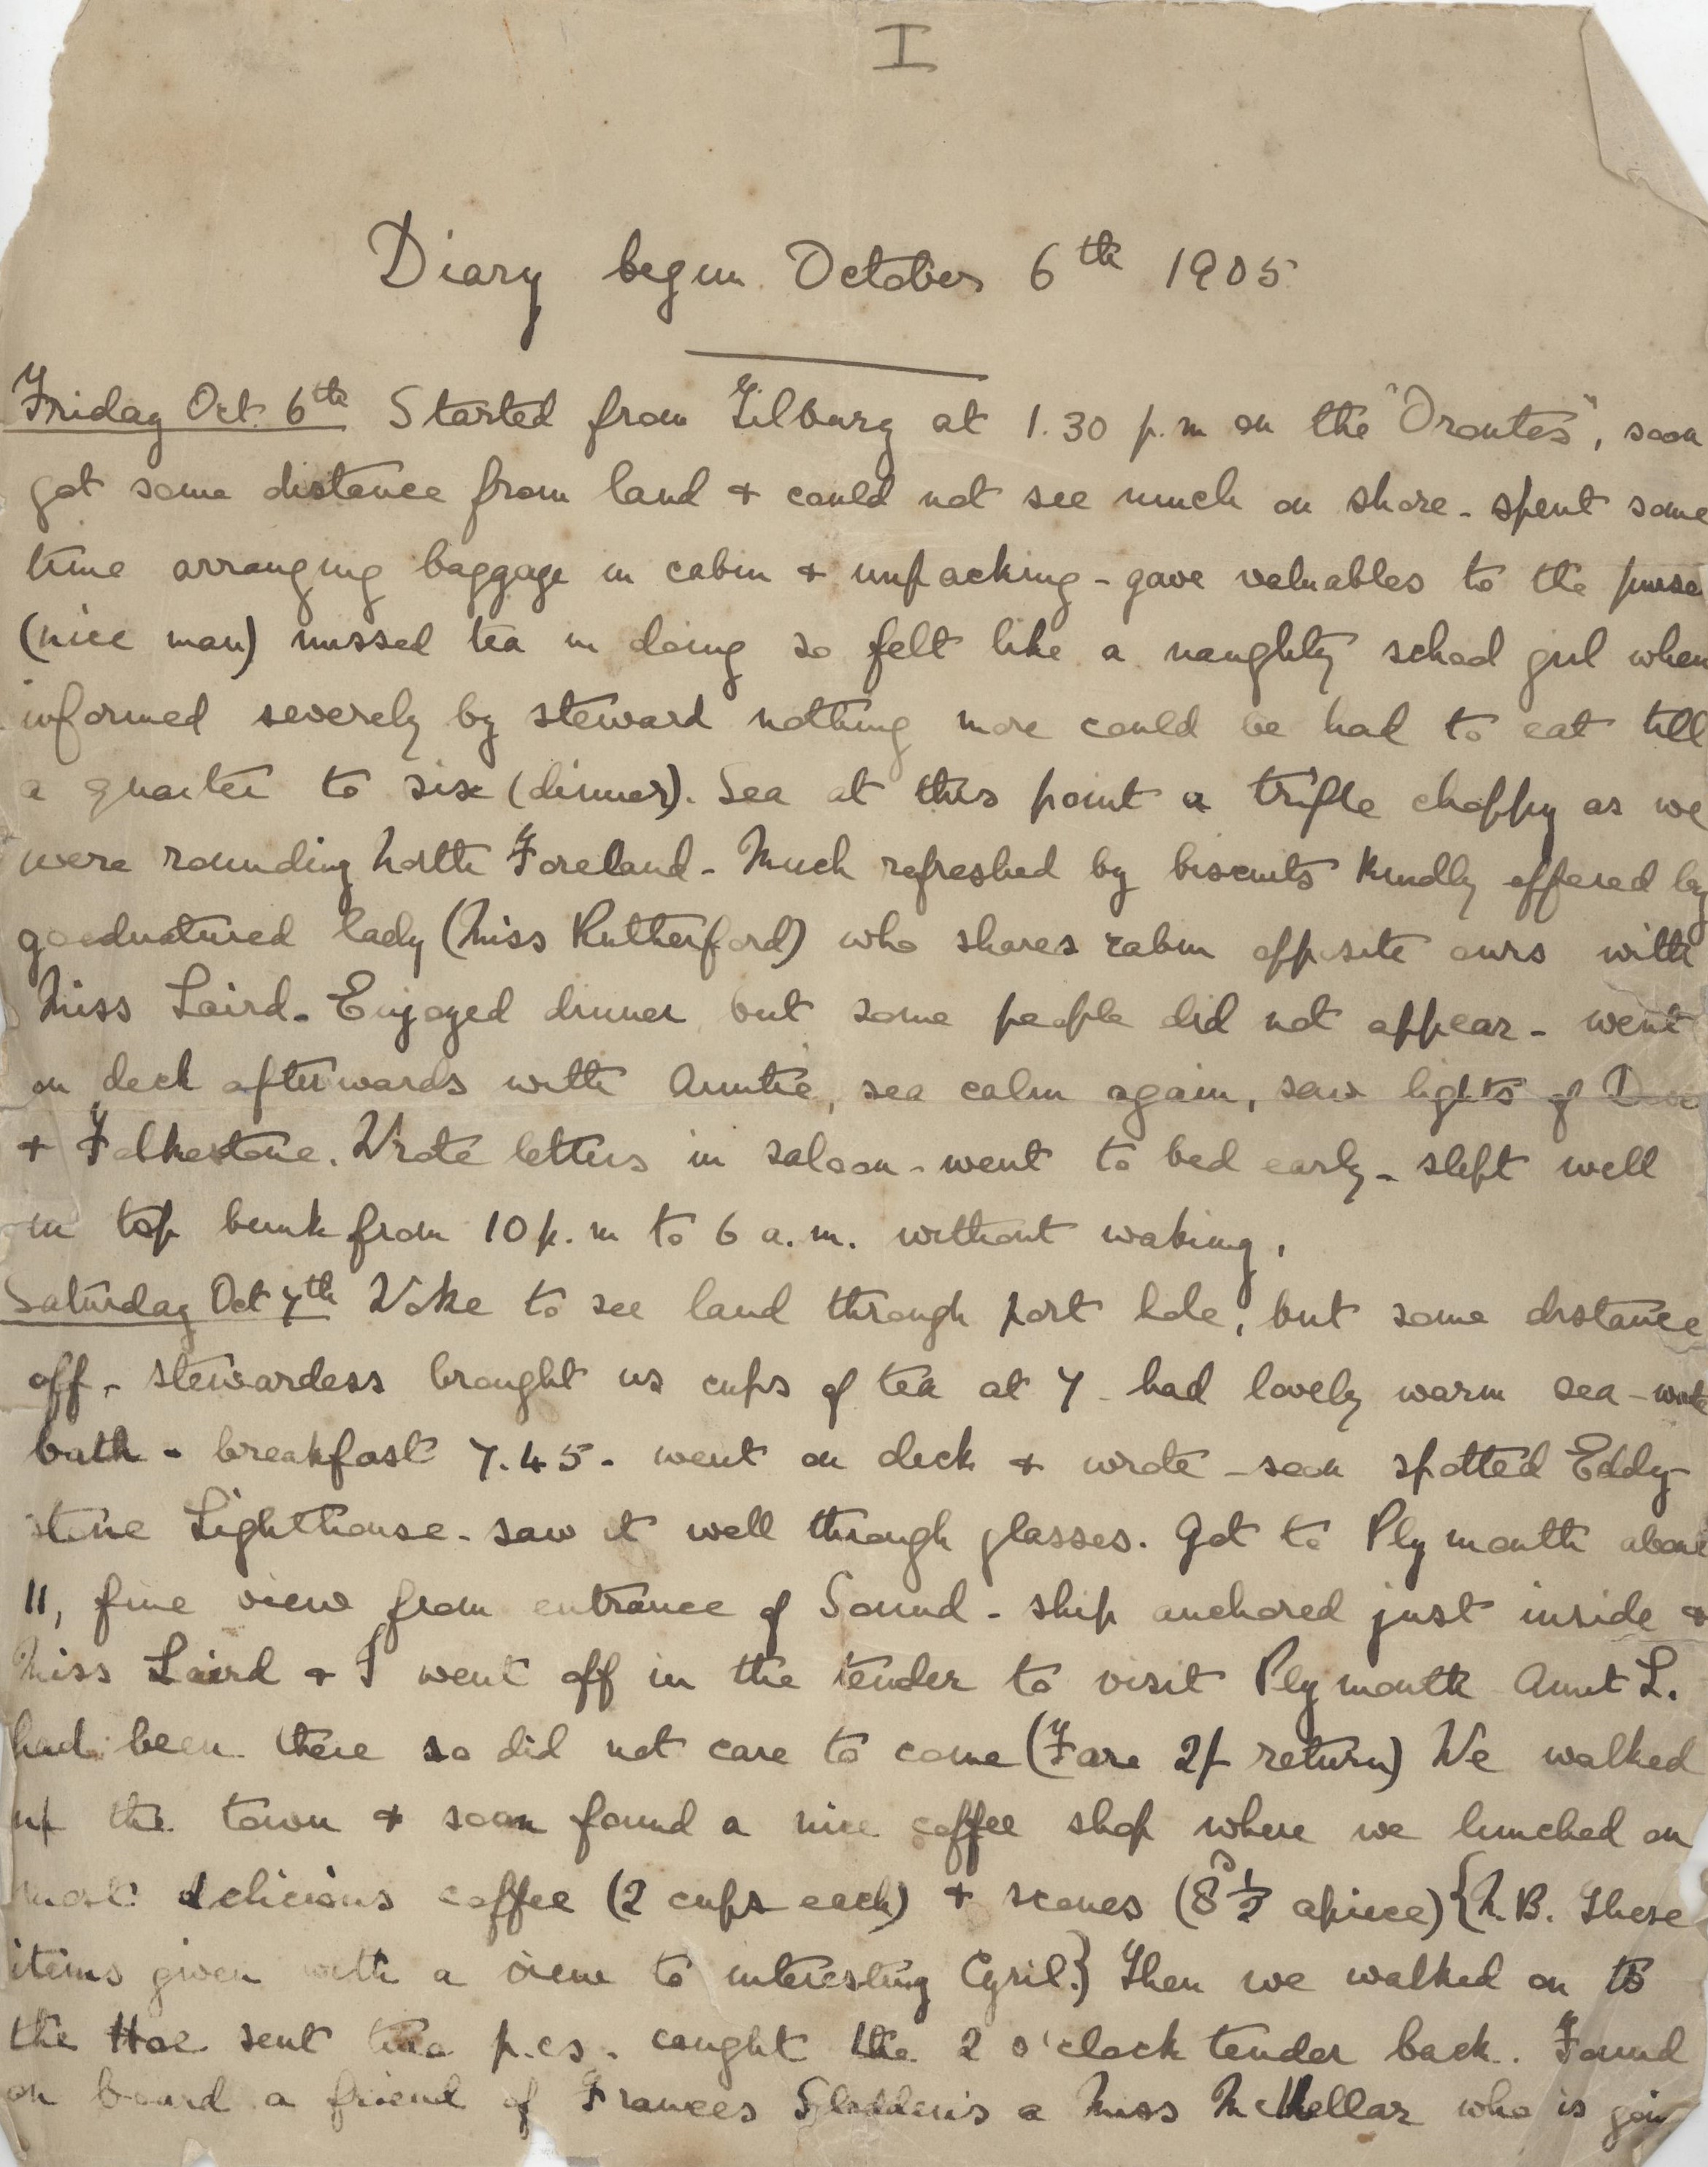 I
Diary begun October 6th 1905
Friday Oct. 6th Started from Tilbury at 1.30 p.m on the "Orontes", soon
got some distance from land + could not see much on shore - spent some
time arranging baggage in cabin + unpacking - gave valuables to the purse
(nice man) missed tea in doing so felt like a naughty school girl when
informed severely by steward nothing more could be had to eat till
a quarter to six (dinner). Sea at this point a trifle choppy as we
were rounding North Foreland - Much refreshed by biscuits kindly offered by
goodnatured lady (Miss Rutherford) who shares cabin opposite ours with
Miss Laird. Enjoyed dinner but some people did not appear - went
on deck afterwards with Auntie, sea calm again, saw lights of
+ Folkestone. Wrote letters in saloon - went to bed early - slept well
in top bunk from 10 p.m to 6 a.m. without waking.
Saturday Oct 7th Woke to see land through port hole, but some distance
off - stewardess brought us cups of tea at 7 - had lovely warm sea-wate
bath - breakfast 7.45 - went on deck + wrote - soon spotted Eddy-
stone Lighthouse - saw it well through glasses. Got to Plymouth about
11, fine view from entrance of Sound - ship anchored just inside +
Miss Laird + I went off in the tender to visit Plymouth Aunt L.
had been there so did not care to come (Fare 2/- return) We walked
up the town + soon found a nice coffee shop where we lunched on
most delicious coffee (2 cups each) + scones (8½ apiece) {N.B. These
items given with a view to interesting Cyril.} Then we walked on to
the Hoe sent two p.cs. caught the 2 o'clock tender back. Found
on board a friend of Frances a Miss McKellar who is goin